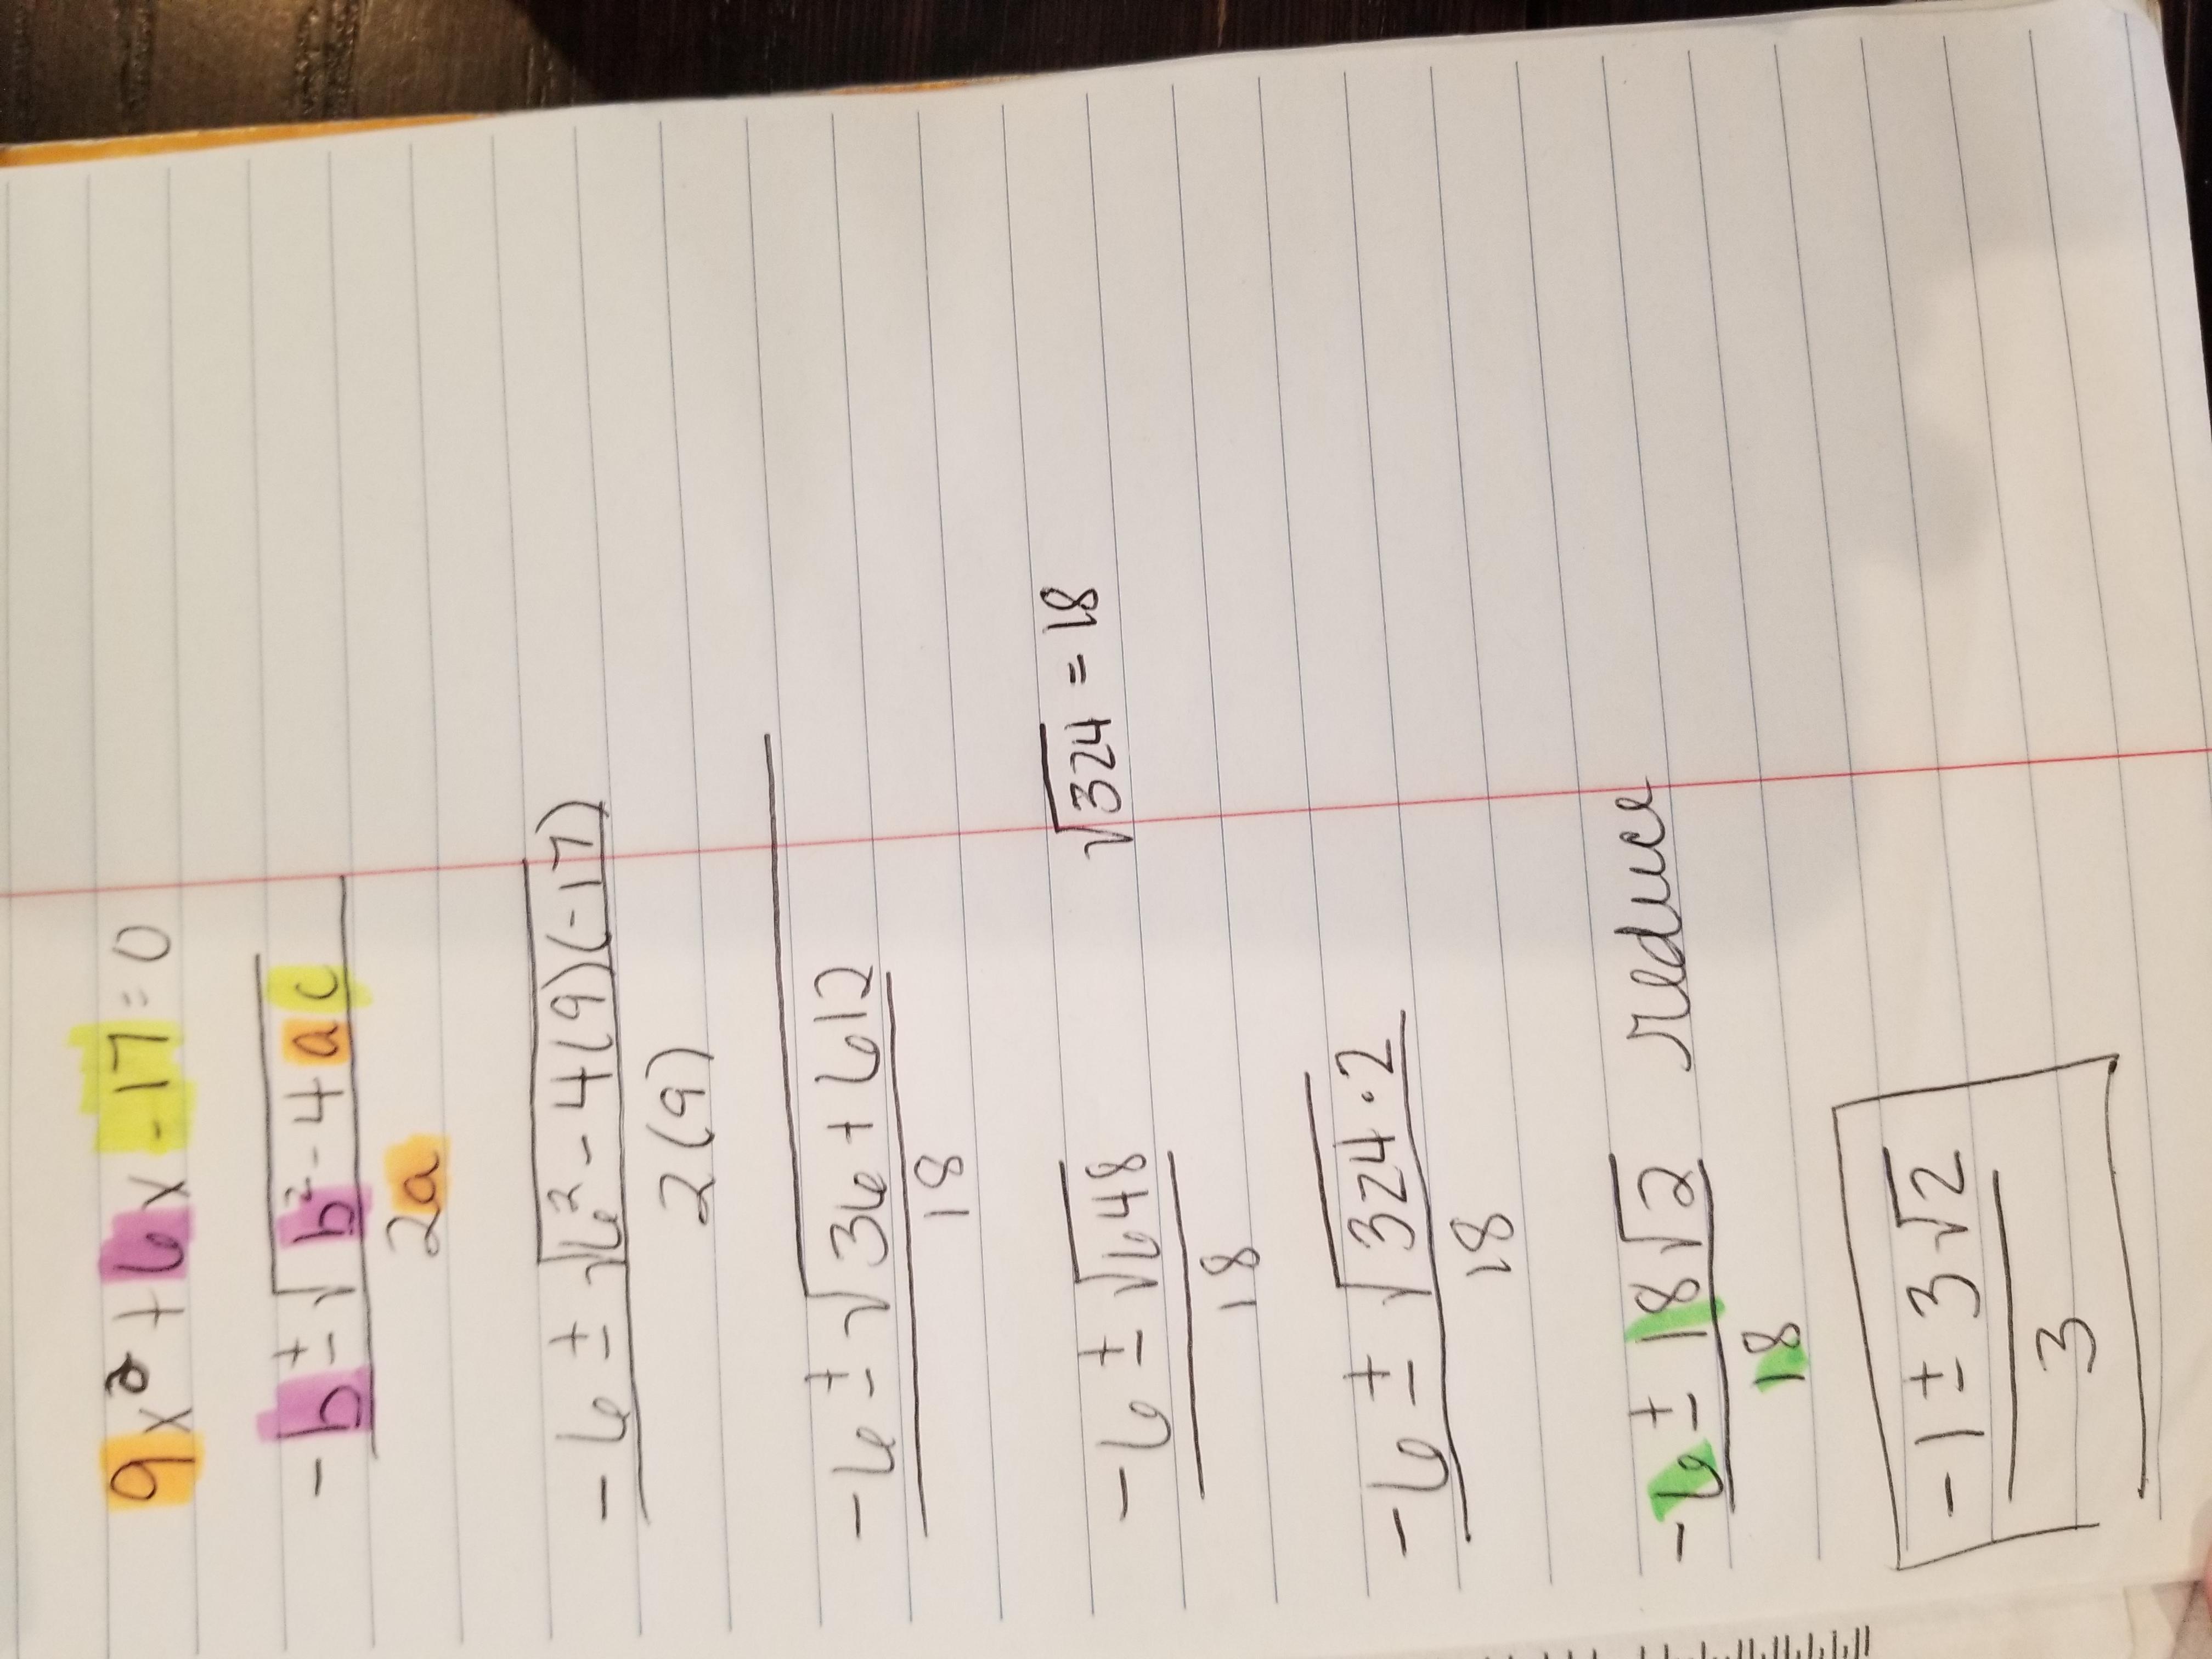 9x² + 6x - 17 = 0
-b ± √b² - 4ac
2a
-6 ± √6² - 4(9)(-17)
2(9)
-6 ± √36 + 612
18
-6 ± √648 √324 = 18
18
-6 ± √324 · 2
18
-6 ± 18√2 reduce
18
-1 ± 3√2
3